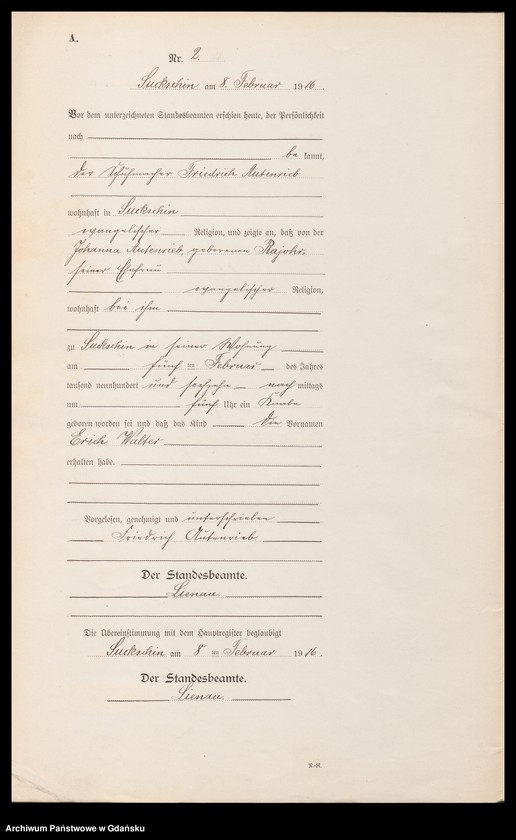 A.
Nr. 2.
Suckschin am 8. Februar 1916.
Vor dem unterzeichneten Standesbeamten erschien heute, der Persönlichkeit
nach
be kannt,
der Schuhmacher Friedrich Autenrieb
wohnhaft in Suckschin
evangelischer Religion, und zeigte an, daß von der
Johanna Autenrieb, geborenen Rajohr,
seiner Ehefrau
evangelischer Religion,
wohnhaft bei ihm
zu Suckschin in seiner Wohnung
am fünf ten Februar des Jahres
tausend neunhundert und sechzehn nach mittags
um fünf Uhr ein Knabe
geboren worden sei und daß das Kind die Vornamen
Erich Walter
erhalten habe.
Vorgelesen, genehmigt und unterschrieben
Friedrich Autenrieb.
Der Standesbeamte.
Lienau.
Die Übereinstimmung mit dem Hauptregister beglaubigt
Suckschin am 8 ten Februar 1916.
Der Standesbeamte.
Lienau.
N.-R.
Archiwum Państwowe w Gdańsku